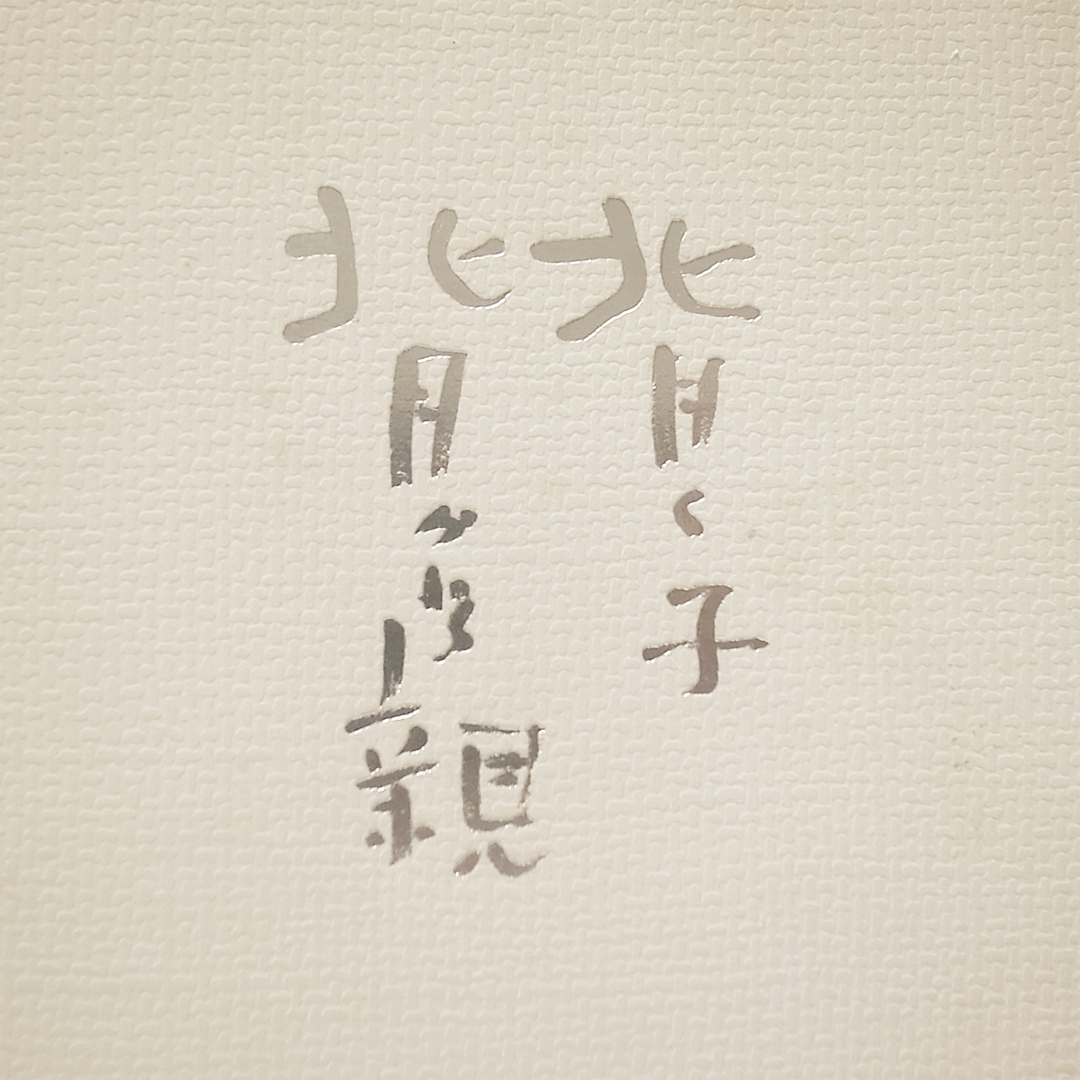 背く子
背かれる親